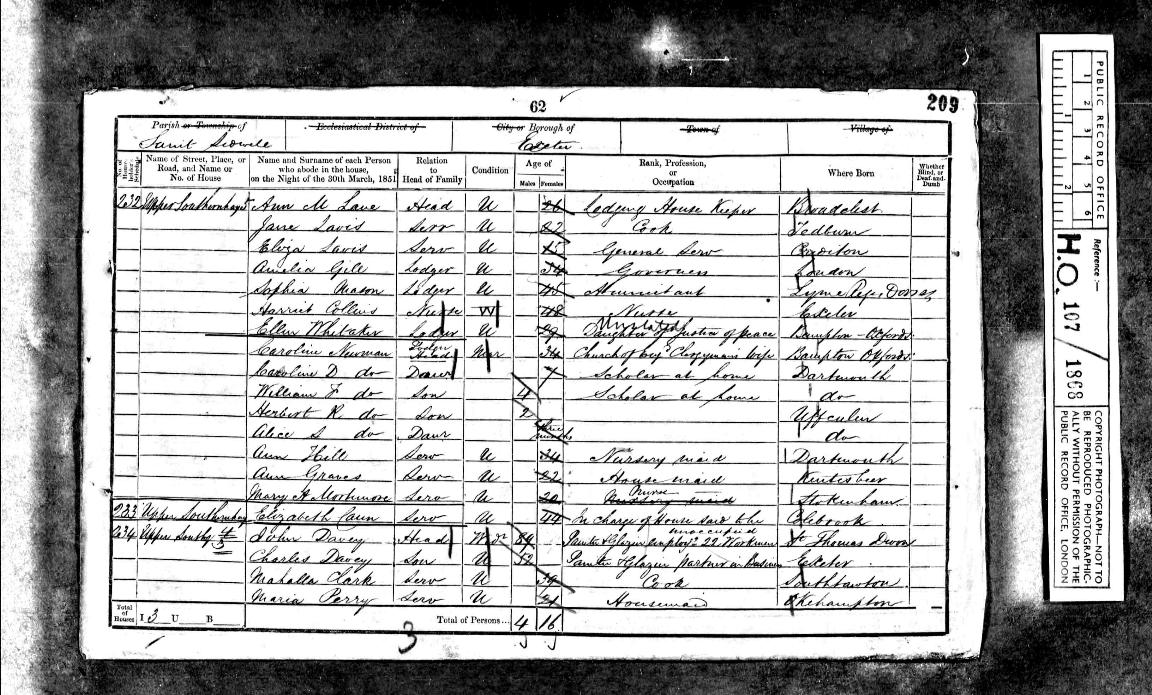 62
209
Parish or Township of
Ecclesiastical District of
City or Borough of
Town of
Village of
Saint Sidwell
Exeter
No. of House-holder's Schedule
Name of Street, Place, or Road, and Name or No. of House
Name and Surname of each Person who abode in the house, on the Night of the 30th March, 1851
Relation to Head of Family
Condition
Age of
Males
Females
Rank, Profession, or Occupation
Where Born
Whether Blind, or Deaf-and-Dumb
232 Upper Southernhay Ann M Lane Head U Lodging House Keeper Broadclist
Jane Lavis Serv U Cook Tedburn
Eliza Lavis Serv U 15 General Serv Crediton
Amelia Gill Lodger U 34 Governess London
Sophia Mason Lodger U 45 Annuitant Lyme Regis Dorset
Harriet Collins Nurse W 48 Nurse Exeter
Ellen Whitaker Lodger U 29 Daughter of Justice of peace Bampton Oxfords
Caroline Newman Lodger Head Mar 34 Church of Eng Clergymans Wife Bampton Oxfords
Caroline D do Daur 7 Scholar at home Dartmouth
William F do Son 4 Scholar at home do
Herbert R do Son 2 Uffculm
Alice S do Daur three months do
Ann Hill Serv U 34 Nursery maid Dartmouth
Ann Graves Serv U 22 House maid Kentisbeer
Mary A Mortimore Serv U 20 Nurse Nursery maid Stokenham
233 Upper Southernhay Elizabeth Serv U 44 In charge of House said to be unoccupied Colebrook
234 Upper John Davey Head Wdr Painter & Glazier employg 22 Workmen St Thomas Devon
Charles Davey Son U 52 Painter & Glazier Partner in Business Exeter
Mahalla Clark Serv U 39 Cook Southtawton
Maria Perry Serv U 21 Housemaid Okehampton
Total of Houses
I 3 U B
Total of Persons... 4 16
3
PUBLIC RECORD OFFICE
1 2 3 4 5 6
1 2
Reference:-
H.O. 107 / 1868
COPYRIGHT PHOTOGRAPH—NOT TO BE REPRODUCED PHOTOGRAPHICALLY WITHOUT PERMISSION OF THE PUBLIC RECORD OFFICE, LONDON